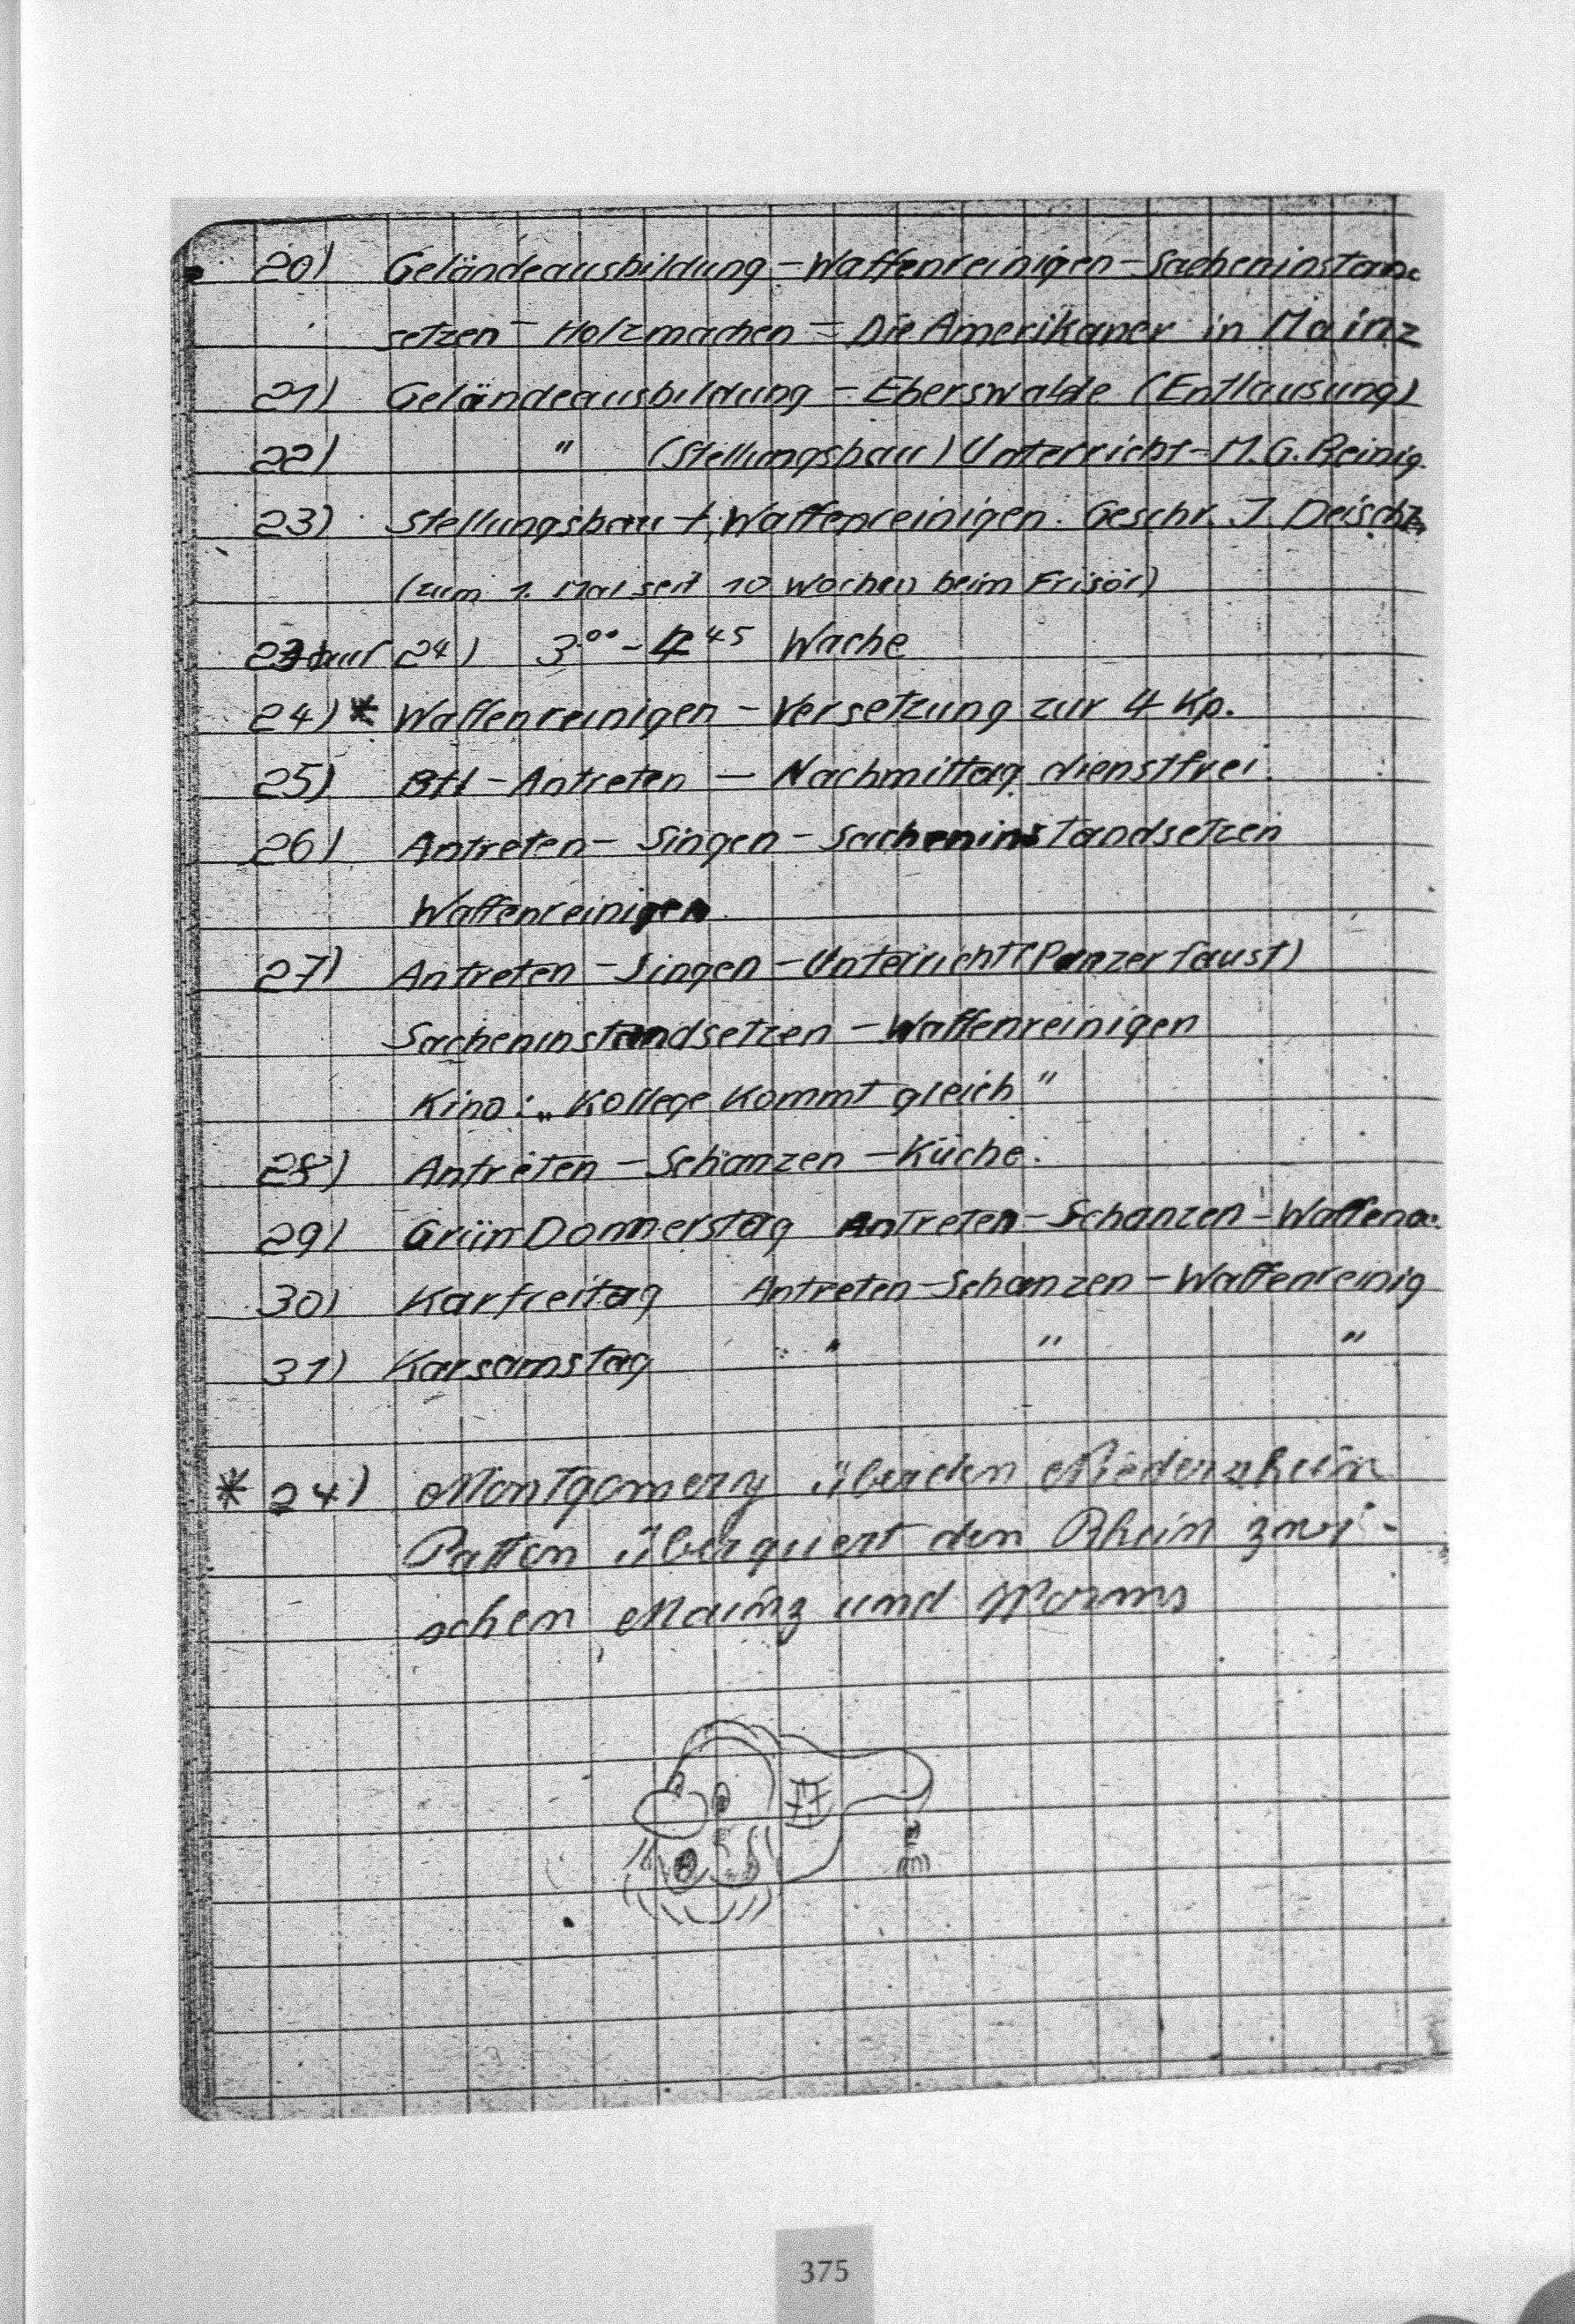 20) Geländeausbildung - Waffenreinigen - Sacheninstan
setzen - Holzmachen = Die Amerikaner in Mainz
21) Geländeausbildung - Eberswalde (Entlausung)
22) " (Stellungsbau) Unterricht - M.G. Reinig.
23) Stellungsbau +, Waffenreinigen. Geschr. J. Deisch
(zum 1. Mal seit 10 Wochen beim Frisör)
23 auf 24) 3⁰⁰ - 4⁴⁵ Wache
24)* Waffenreinigen - Versetzung zur 4 Kp.
25) Btl - Antreten - Nachmittag dienstfrei
26) Antreten - Singen - Sacheninstandsetzen
Waffenreinigen
27) Antreten - Singen - Unterricht (Panzerfaust)
Sacheninstandsetzen - Waffenreinigen
Kino: „Kollege kommt gleich"
28) Antreten - Schanzen - Küche.
29) GrünDonnerstag Antreten - Schanzen - Waffen
30) Karfreitag Antreten - Schanzen - Waffenreinig
31) Karsamstag " " "
* 24) Montgomery über den Niederrhein
Patton überquert den Rhein zwi-
schen Mainz und Worms
375